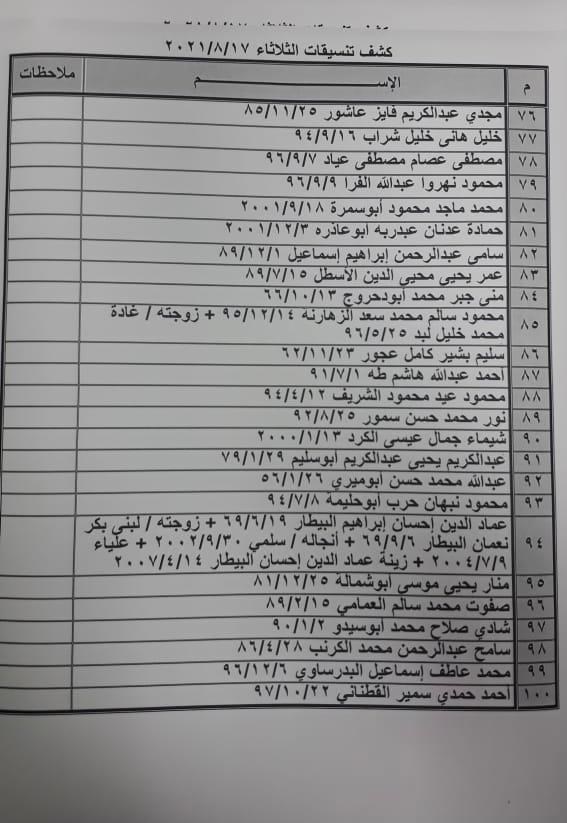 كشف تنسيقات الثلاثاء ٢٠٢١/٨/١٧
م الإســـم ملاحظات
٧٦ مجدي عبدالكريم فايز عاشور ٨٥/١١/٢٥
٧٧ خليل هانى خليل شراب ٩٤/٩/١٦
٧٨ مصطفى عصام مصطفى عياد ٩٦/٩/٧
٧٩ محمود نهروا عبدالله الفرا ٩٦/٩/٩
٨٠ محمد ماجد محمود أبوسمرة ٢٠٠١/٩/١٨
٨١ حمادة عدنان عبدربه أبوعاذره ٢٠٠١/١٢/٣
٨٢ سامى عبدالرحمن إبراهيم إسماعيل ٨٩/١٢/١
٨٣ عمر يحيى محيي الدين الأسطل ٨٩/٧/١٥
٨٤ منى جبر محمد أبودحروج ٦٦/١٠/١٣
٨٥ محمود سالم محمد سعد الزهارنة ٩٥/١٢/١٤ + زوجته / غادة
محمد خليل لبد ٩٦/٥/٢٥
٨٦ سليم بشير كامل عجور ٦٢/١١/٢٣
٨٧ أحمد عبدالله هاشم طه ٩١/٧/١
٨٨ محمود عيد محمود الشريف ٩٤/٤/١٢
٨٩ نور محمد حسن سمور ٩٢/٨/٢٥
٩٠ شيماء جمال عيسى الكرد ٢٠٠٠/١/١٣
٩١ عبدالكريم يحيى عبدالكريم أبوسليم ٧٩/١/٢٩
٩٢ عبدالله محمد حسن أبوميري ٥٦/١/٢٦
٩٣ محمود نبهان حرب أبوحليمة ٩٤/٧/٨
٩٤ عماد الدين إحسان إبراهيم البيطار ٦٩/٦/١٩ + زوجته / لبنى بكر
نعمان البيطار ٦٩/٩/٦ + أنجاله / سلمي ٢٠٠٢/٩/٣٠ + علياء
٢٠٠٤/٧/٩ + زينة عماد الدين إحسان البيطار ٢٠٠٧/٤/١٤
٩٥ منار يحيى موسى أبوشمالة ٨١/١٢/٢٥
٩٦ صفوت محمد سالم العمامي ٨٩/٢/١٥
٩٧ شادي صلاح محمد أبوسيدو ٩٠/١/٢
٩٨ سامح عبدالرحمن محمد الكرنب ٨٦/٤/٢٨
٩٩ محمد عاطف إسماعيل البدرساوي ٩٦/١٢/٦
١٠٠ أحمد حمدي سمير القطناني ٩٧/١٠/٢٢